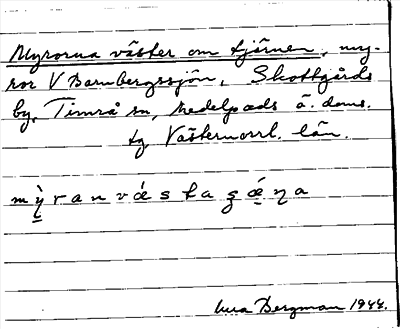 Myrorna väster om tjärnen, my-
ror V Barnbergssjön, Skottgårds
by, Timrå sn, Medelpads ö. doms.
tg Västernorrl. län.
mỳranvǽstaʂǽŋa
Bergman 1944.